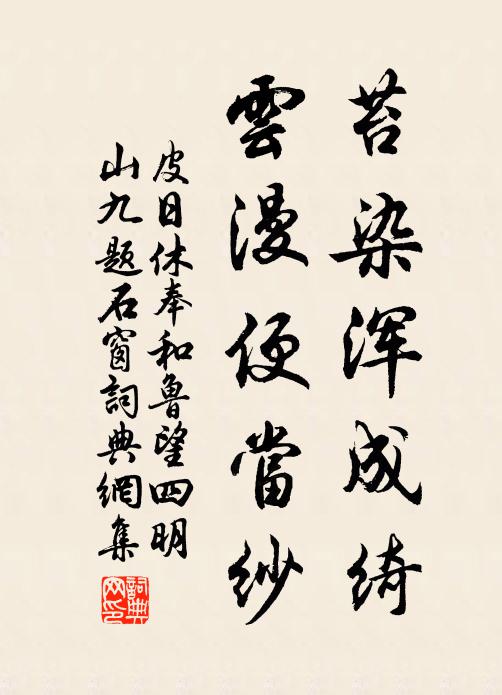 苔染浑成绮
雲漫便當紗
皮日休奉和鲁望四明
山九题石窗詞典網集
詞典